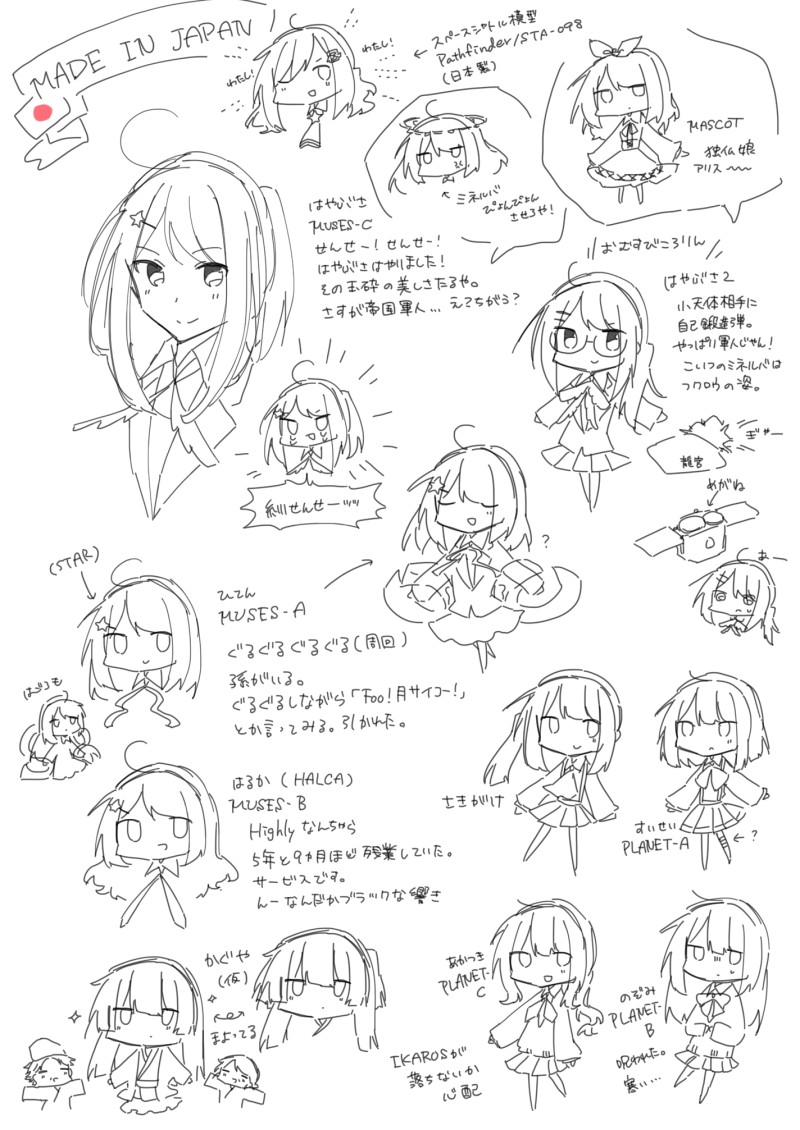 MADE IN JAPAN
わたし!
わたし!
← スペースシャトル模型
Pathfinder/STA-098
(日本製)
MASCOT
独仏娘
アリス〜〜
ミネルバ
ぴょんぴょん
させろや!
はやぶさ
MUSES-C
せんせー!せんせー!
はやぶさはやりました!
その玉砕の美しさたるや。
さすが帝国軍人…えっちがう?
おむすびころりん
はやぶさ2
小天体相手に
自己鍛造弾。
やっぱり軍人じゃん!
こいつのミネルバは
フクロウの姿。
ぎゃー
龍宮
めがね
あー
糸川せんせーッッ
(STAR)
ひてん
MUSES-A
ぐるぐるぐるぐる(周回)
孫がいる。
ぐるぐるしながら「Foo!月サイコー!」
とか言ってみる。引かれた。
?
はごろも
はるか (HALCA)
MUSES-B
Highlyなんちゃら
5年と9カ月ほど残業していた。
サービスです。
んーなんだかブラックな響き
さきがけ
すいせい
PLANET-A
← ?
かぐや
(仮)
まよってる
あかつき
PLANET-
C
IKAROSが
落ちないか
心配
のぞみ
PLANET-
B
呪われた。
寒い…